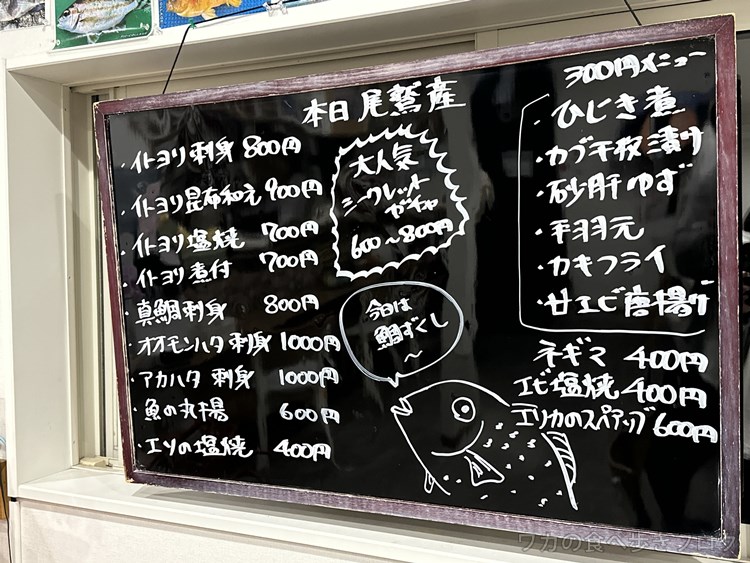 本日 尾鷲産
・イトヨリ刺身 800円
・イトヨリ昆布和え 900円
・イトヨリ塩焼 700円
・イトヨリ煮付 700円
・真鯛刺身 800円
・オオモンハタ刺身 1000円
・アカハタ 刺身 1000円
・魚の丸揚 600円
・エソの塩焼 400円
大人気
シークレット
ガチャ
600〜800円
今日は
鯛ずくし
〜
300円メニュー
・ひじき煮
・カブ千枚漬け
・砂肝ゆず
・手羽元
・カキフライ
・甘エビ唐揚げ
ネギマ 400円
エビ塩焼 400円
エリカのスペアップ 600円
ワカの食べ歩きブログ